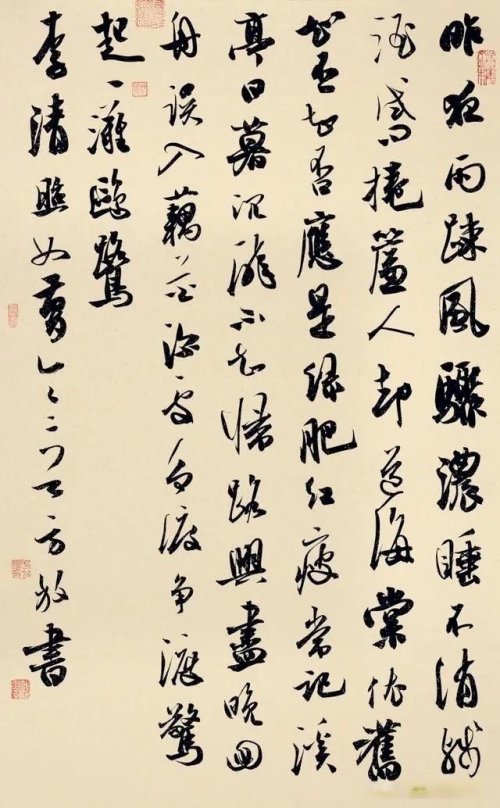 昨夜雨疎風驟濃睡不消殘
酒試問捲簾人却道海棠依舊
知否知否應是綠肥紅瘦常記溪
亭日暮沉醉不知歸路興盡晚回
舟誤入藕花深處爭渡争渡驚
起一灘鷗鷺
李清照如夢令二方放書